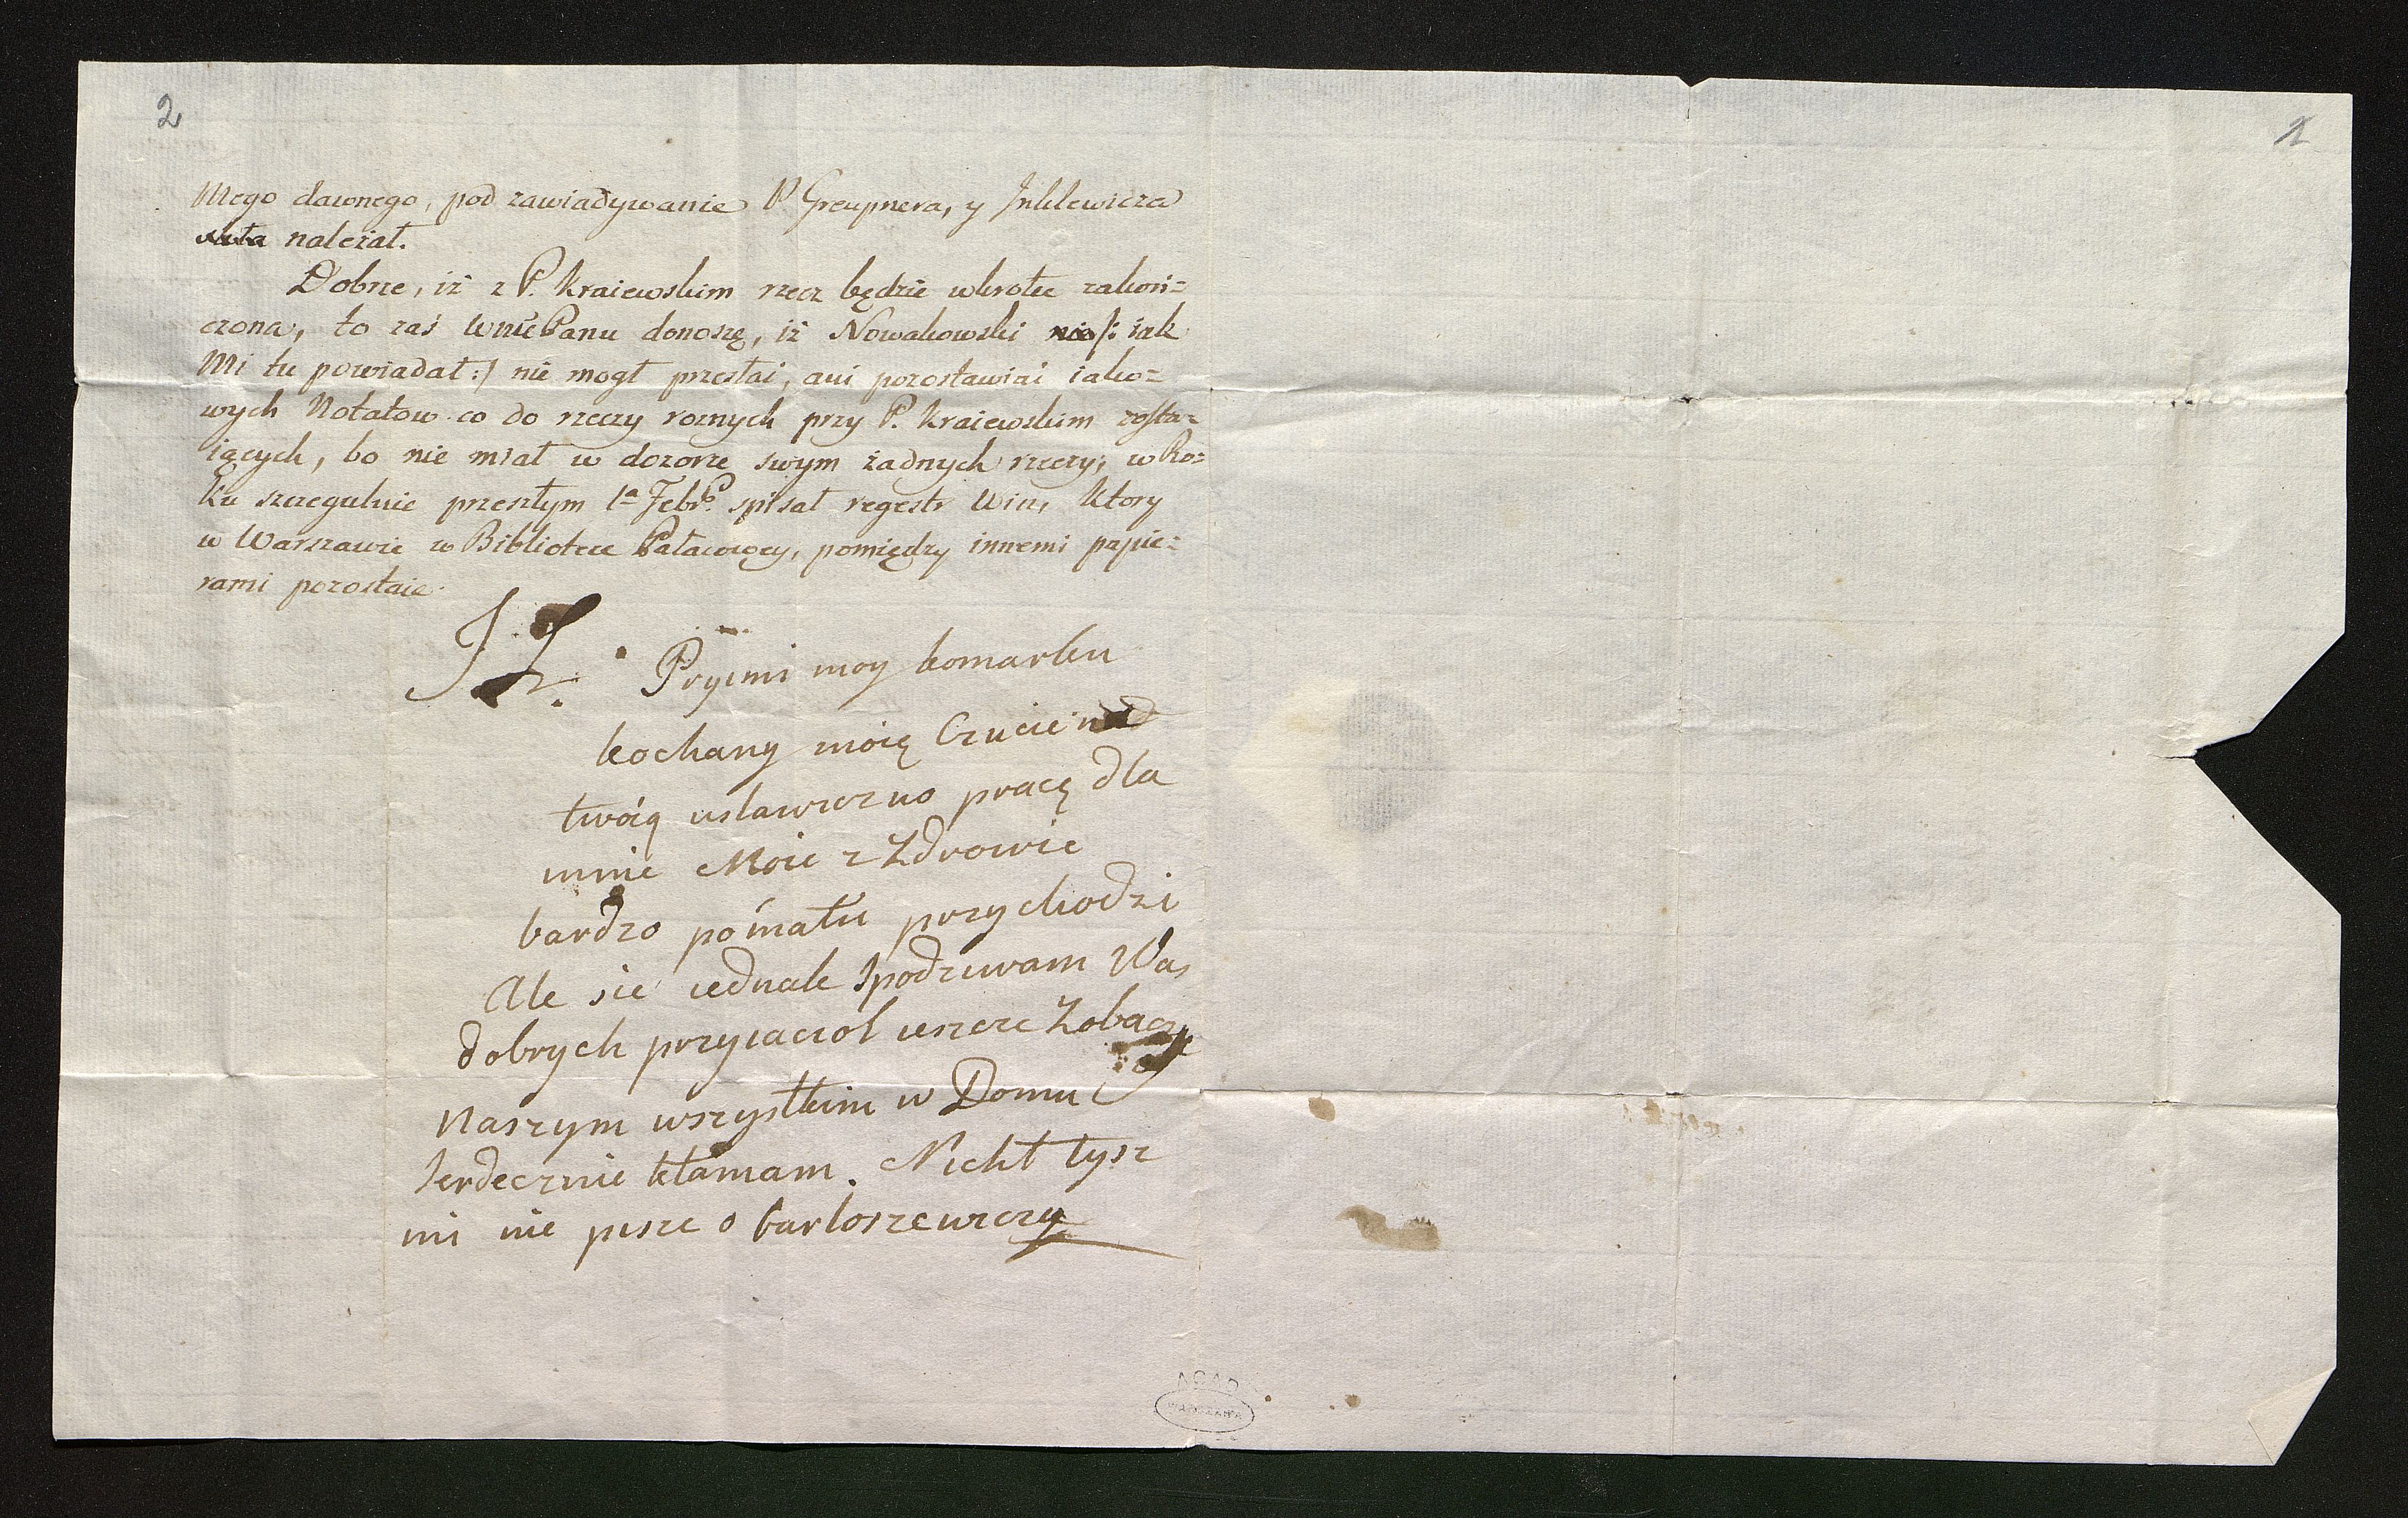 2
1
Mego dawnego, pod zawiadywanie P. Greupnera, y Inklewicza
należał.
Dobrze, iż z P. Kraiewskim rzecz będzie wkrotce zakoń=
czona, to zaś WmćPanu donoszę, iż Nowakowski nie /: iak
Mi tu powiadał :/ nie mogł przesłai, ani pozostawiai iako=
wych Notatow co do rzeczy roznych przy P. Kraiewskim zosta=
iących, bo nie miał w dozorze swym żadnych rzeczy; w Ro=
ku szczegulnie przeszłym 1ª Febr. spisał regestr Win, ktory
w Warszawie w Bibliotece Pałacowey, pomiędzy innemi papie=
rami pozostaie.
Pryimi moy komarku
kochany moię Czucie nad
twoią ustawiczno pracę dla
mnie Moie z Zdrowie
bardzo pomału przychodzi
Ale sie iednak spodziwam Was
dobrych przyiacioł ieszcze Zobaczyc
Naszym wszystkim w Domu
serdecznie kłaniam. Nicht tysz
mi nie pisze o bartoszewiczy
AGAD
WARSZAWA